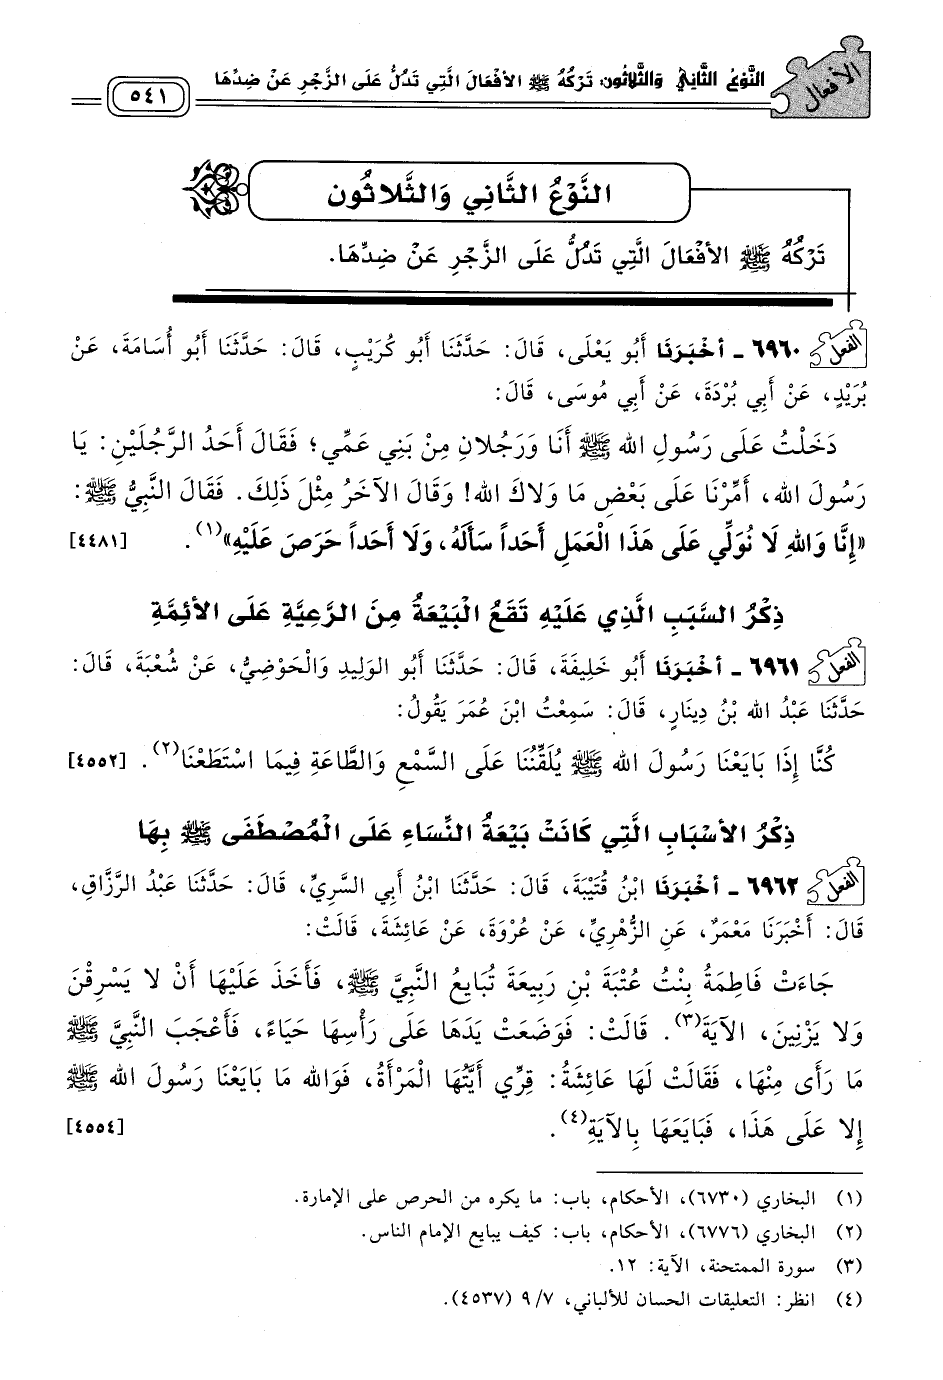 الأفعال
النَّوْعُ الثَّانِي وَالثَّلَاثُونَ: تَرْكُهُ ﷺ الأَفْعَالَ الَّتِي تَدُلُّ عَلَى الزَّجْرِ عَنْ ضِدِّهَا
٥٤١
النَّوْعُ الثَّانِي وَالثَّلاثُون
تَرْكُهُ ﷺ الأَفْعَالَ الَّتِي تَدُلُّ عَلَى الزَّجْرِ عَنْ ضِدِّهَا.
الفعل ٦٩٦٠ - أَخْبَرَنَا أَبُو يَعْلَى، قَالَ: حَدَّثَنَا أَبُو كُرَيْبٍ، قَالَ: حَدَّثَنَا أَبُو أُسَامَةَ، عَنْ
بُرَيْدٍ، عَنْ أَبِي بُرْدَةَ، عَنْ أَبِي مُوسَى، قَالَ:
دَخَلْتُ عَلَى رَسُولِ الله ﷺ أَنَا وَرَجُلانِ مِنْ بَنِي عَمِّي؛ فَقَالَ أَحَدُ الرَّجُلَيْنِ: يَا
رَسُولَ الله، أَمِّرْنَا عَلَى بَعْضِ مَا وَلاكَ الله! وَقَالَ الآخَرُ مِثْلَ ذَلِكَ. فَقَالَ النَّبِيُّ ﷺ:
«إِنَّا وَاللهِ لَا نُوَلِّي عَلَى هَذَا الْعَمَلِ أَحَداً سَأَلَهُ، وَلَا أَحَداً حَرَصَ عَلَيْهِ»(١). [٤٤٨١]
ذِكْرُ السَّبَبِ الَّذِي عَلَيْهِ تَقَعُ الْبَيْعَةُ مِنَ الرَّعِيَّةِ عَلَى الأَئِمَّةِ
الفعل ٦٩٦١ - أَخْبَرَنَا أَبُو خَلِيفَةَ، قَالَ: حَدَّثَنَا أَبُو الوَلِيدِ وَالْحَوْضِيُّ، عَنْ شُعْبَةَ، قَالَ:
حَدَّثَنَا عَبْدُ الله بْنُ دِينَارٍ، قَالَ: سَمِعْتُ ابْنَ عُمَرَ يَقُولُ:
كُنَّا إِذَا بَايَعْنَا رَسُولَ الله ﷺ يُلَقِّنُنَا عَلَى السَّمْعِ وَالطَّاعَةِ فِيمَا اسْتَطَعْنَا(٢). [٤٥٥٢]
ذِكْرُ الأَسْبَابِ الَّتِي كَانَتْ بَيْعَةُ النِّسَاءِ عَلَى الْمُصْطَفَى ﷺ بِهَا
الفعل ٦٩٦٢ - أَخْبَرَنَا ابْنُ قُتَيْبَةَ، قَالَ: حَدَّثَنَا ابْنُ أَبِي السَّرِيِّ، قَالَ: حَدَّثَنَا عَبْدُ الرَّزَّاقِ،
قَالَ: أَخْبَرَنَا مَعْمَرٌ، عَنِ الزُّهْرِيِّ، عَنْ عُرْوَةَ، عَنْ عَائِشَةَ، قَالَتْ:
جَاءَتْ فَاطِمَةُ بِنْتُ عُتْبَةَ بْنِ رَبِيعَةَ تُبَايِعُ النَّبِيَّ ﷺ، فَأَخَذَ عَلَيْهَا أَنْ لا يَسْرِقْنَ
وَلا يَزْنِينَ، الآيَةَ(٣). قَالَتْ: فَوَضَعَتْ يَدَهَا عَلَى رَأْسِهَا حَيَاءً، فَأَعْجَبَ النَّبِيَّ ﷺ
مَا رَأَى مِنْهَا، فَقَالَتْ لَهَا عَائِشَةُ: قِرِّي أَيَّتُهَا الْمَرْأَةُ، فَوَالله مَا بَايَعْنَا رَسُولَ الله ﷺ
إِلا عَلَى هَذَا، فَبَايَعَهَا بِالآيَةِ(٤). [٤٥٥٤]
(١) البخاري (٦٧٣٠)، الأحكام، باب: ما يكره من الحرص على الإمارة.
(٢) البخاري (٦٧٧٦)، الأحكام، باب: كيف يبايع الإمام الناس.
(٣) سورة الممتحنة، الآية: ١٢.
(٤) انظر: التعليقات الحسان للألباني، ٩/٧ (٤٥٣٧).